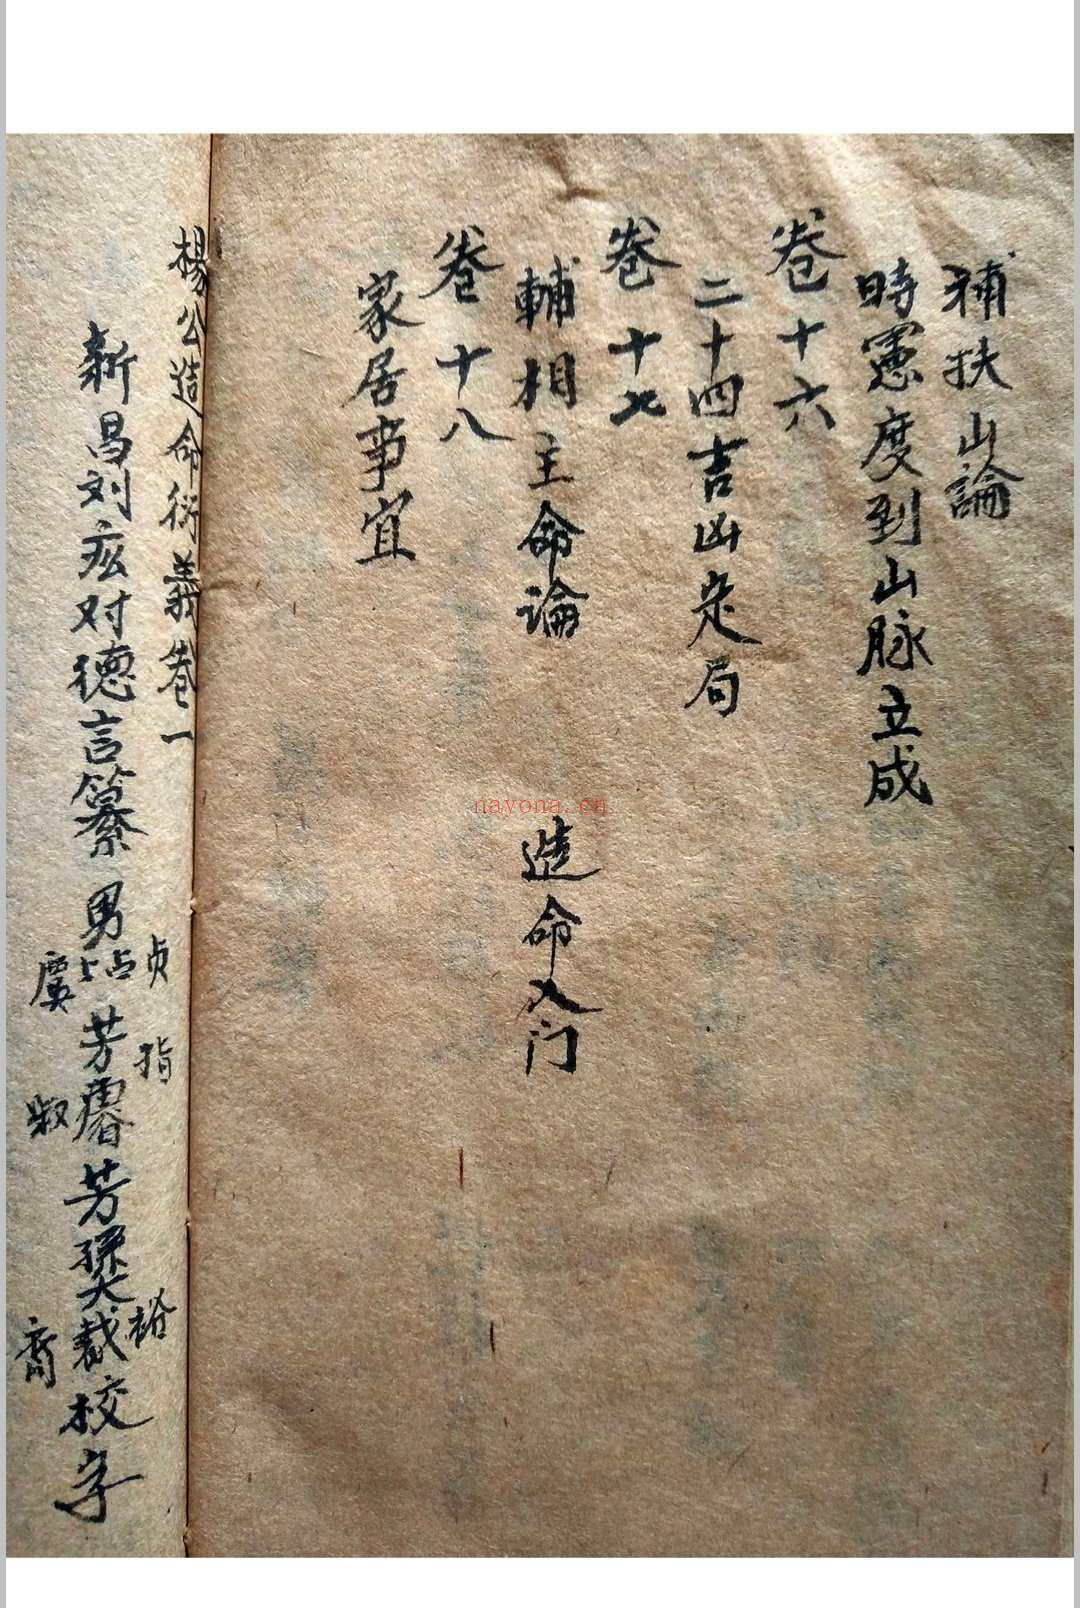 補扶山論
時憲度到山脉立成
卷十六
二十四吉凶定局
卷十七
輔相主命論 造命入门
卷十八
家居事宜
楊公造命衍義卷一
新昌刘玆对德言纂 男 芳 芳 校字
贞 指 裕
虞 叔 裔
nayona.cn